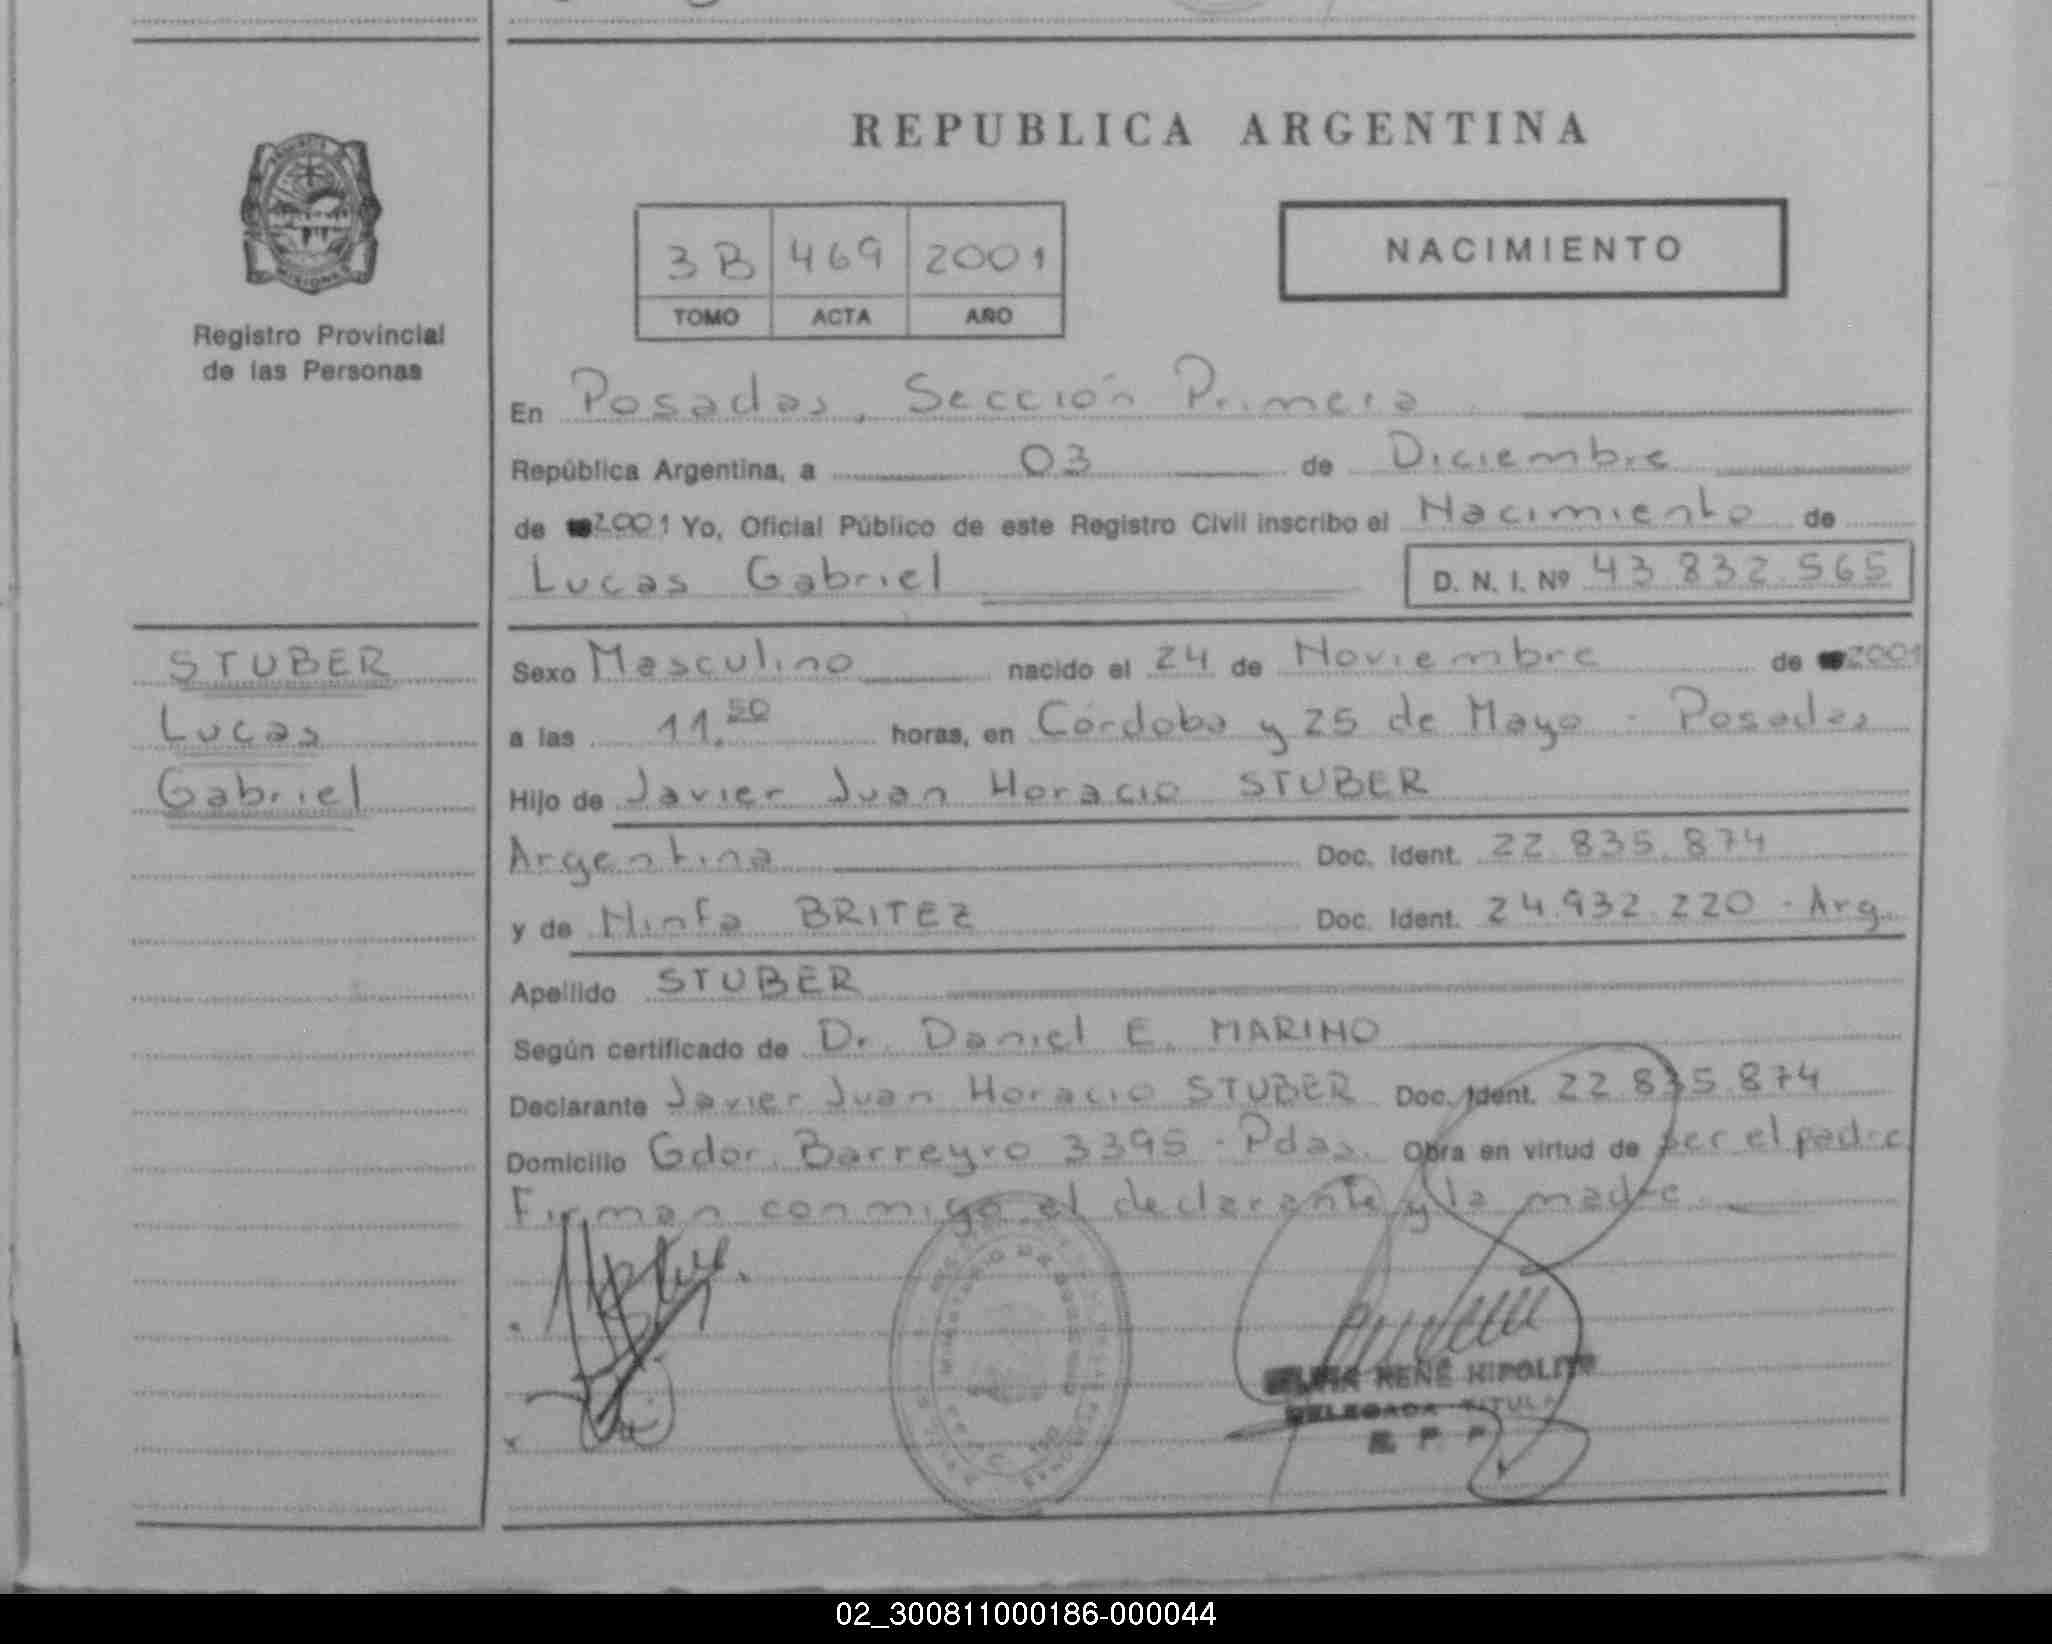 REPUBLICA ARGENTINA
Registro Provincial
de las Personas
3B 469 2001
TOMO ACTA AÑO
NACIMIENTO
En Posadas, Sección Primera
República Argentina, a 03 de Diciembre
de 2001 Yo, Oficial Público de este Registro Civil inscribo el Nacimiento de
Lucas Gabriel D. N. I. Nº 43 832.565
STUBER
Lucas
Gabriel
Sexo Masculino nacido el 24 de Noviembre de 2001
a las 11.50 horas, en Córdoba y 25 de Mayo - Posadas
Hijo de Javier Juan Horacio STUBER
Argentina Doc. Ident. 22.835.874
y de Ninfa BRITEZ Doc. Ident. 24.932.220 - Arg.
Apellido STUBER
Según certificado de Dr. Daniel E. MARINO
Declarante Javier Juan Horacio STUBER Doc. Ident. 22.835.874
Domicilio Gdor. Barreyro 3395 - Pdas. Obra en virtud de ser el padre
Firman conmigo el declarante y la madre.
RENÉ HIPOLITO
DELEGADA TITULAR
R. P. P.
02_300811000186-000044